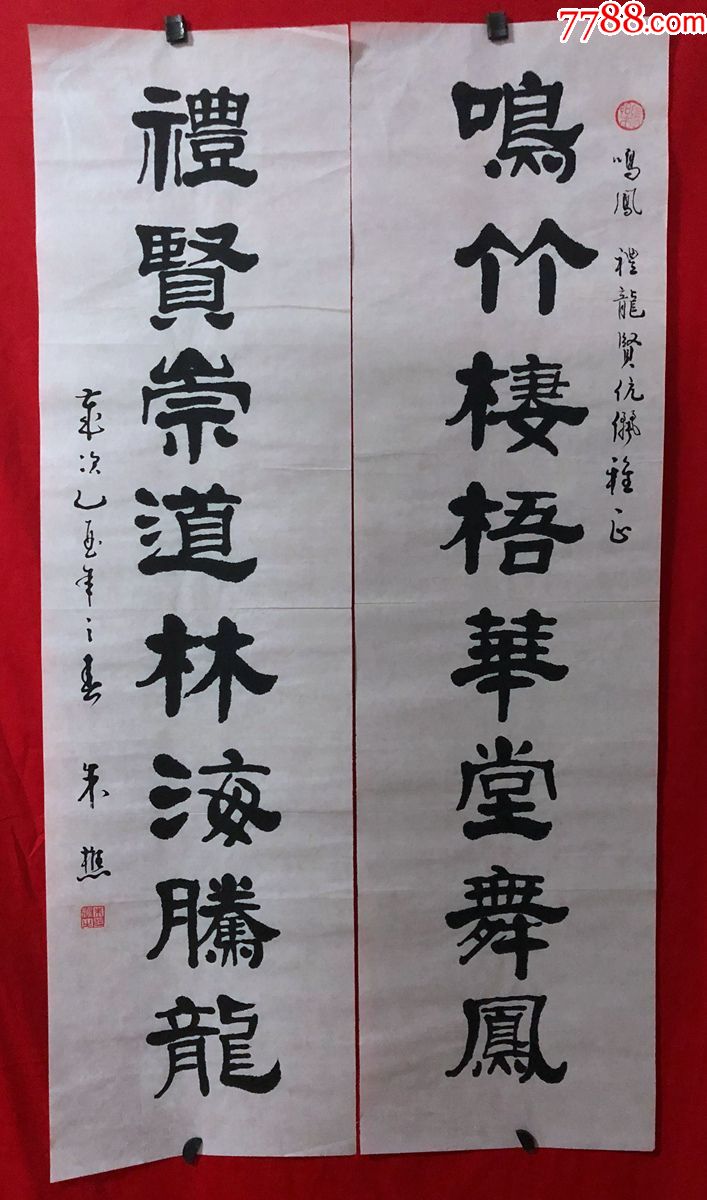 7788.com
鳴鳳 禮龍賢伉儷雅正
鳴竹棲梧華堂舞鳳
禮賢崇道林海騰龍
歲次乙酉年之春 朱樵